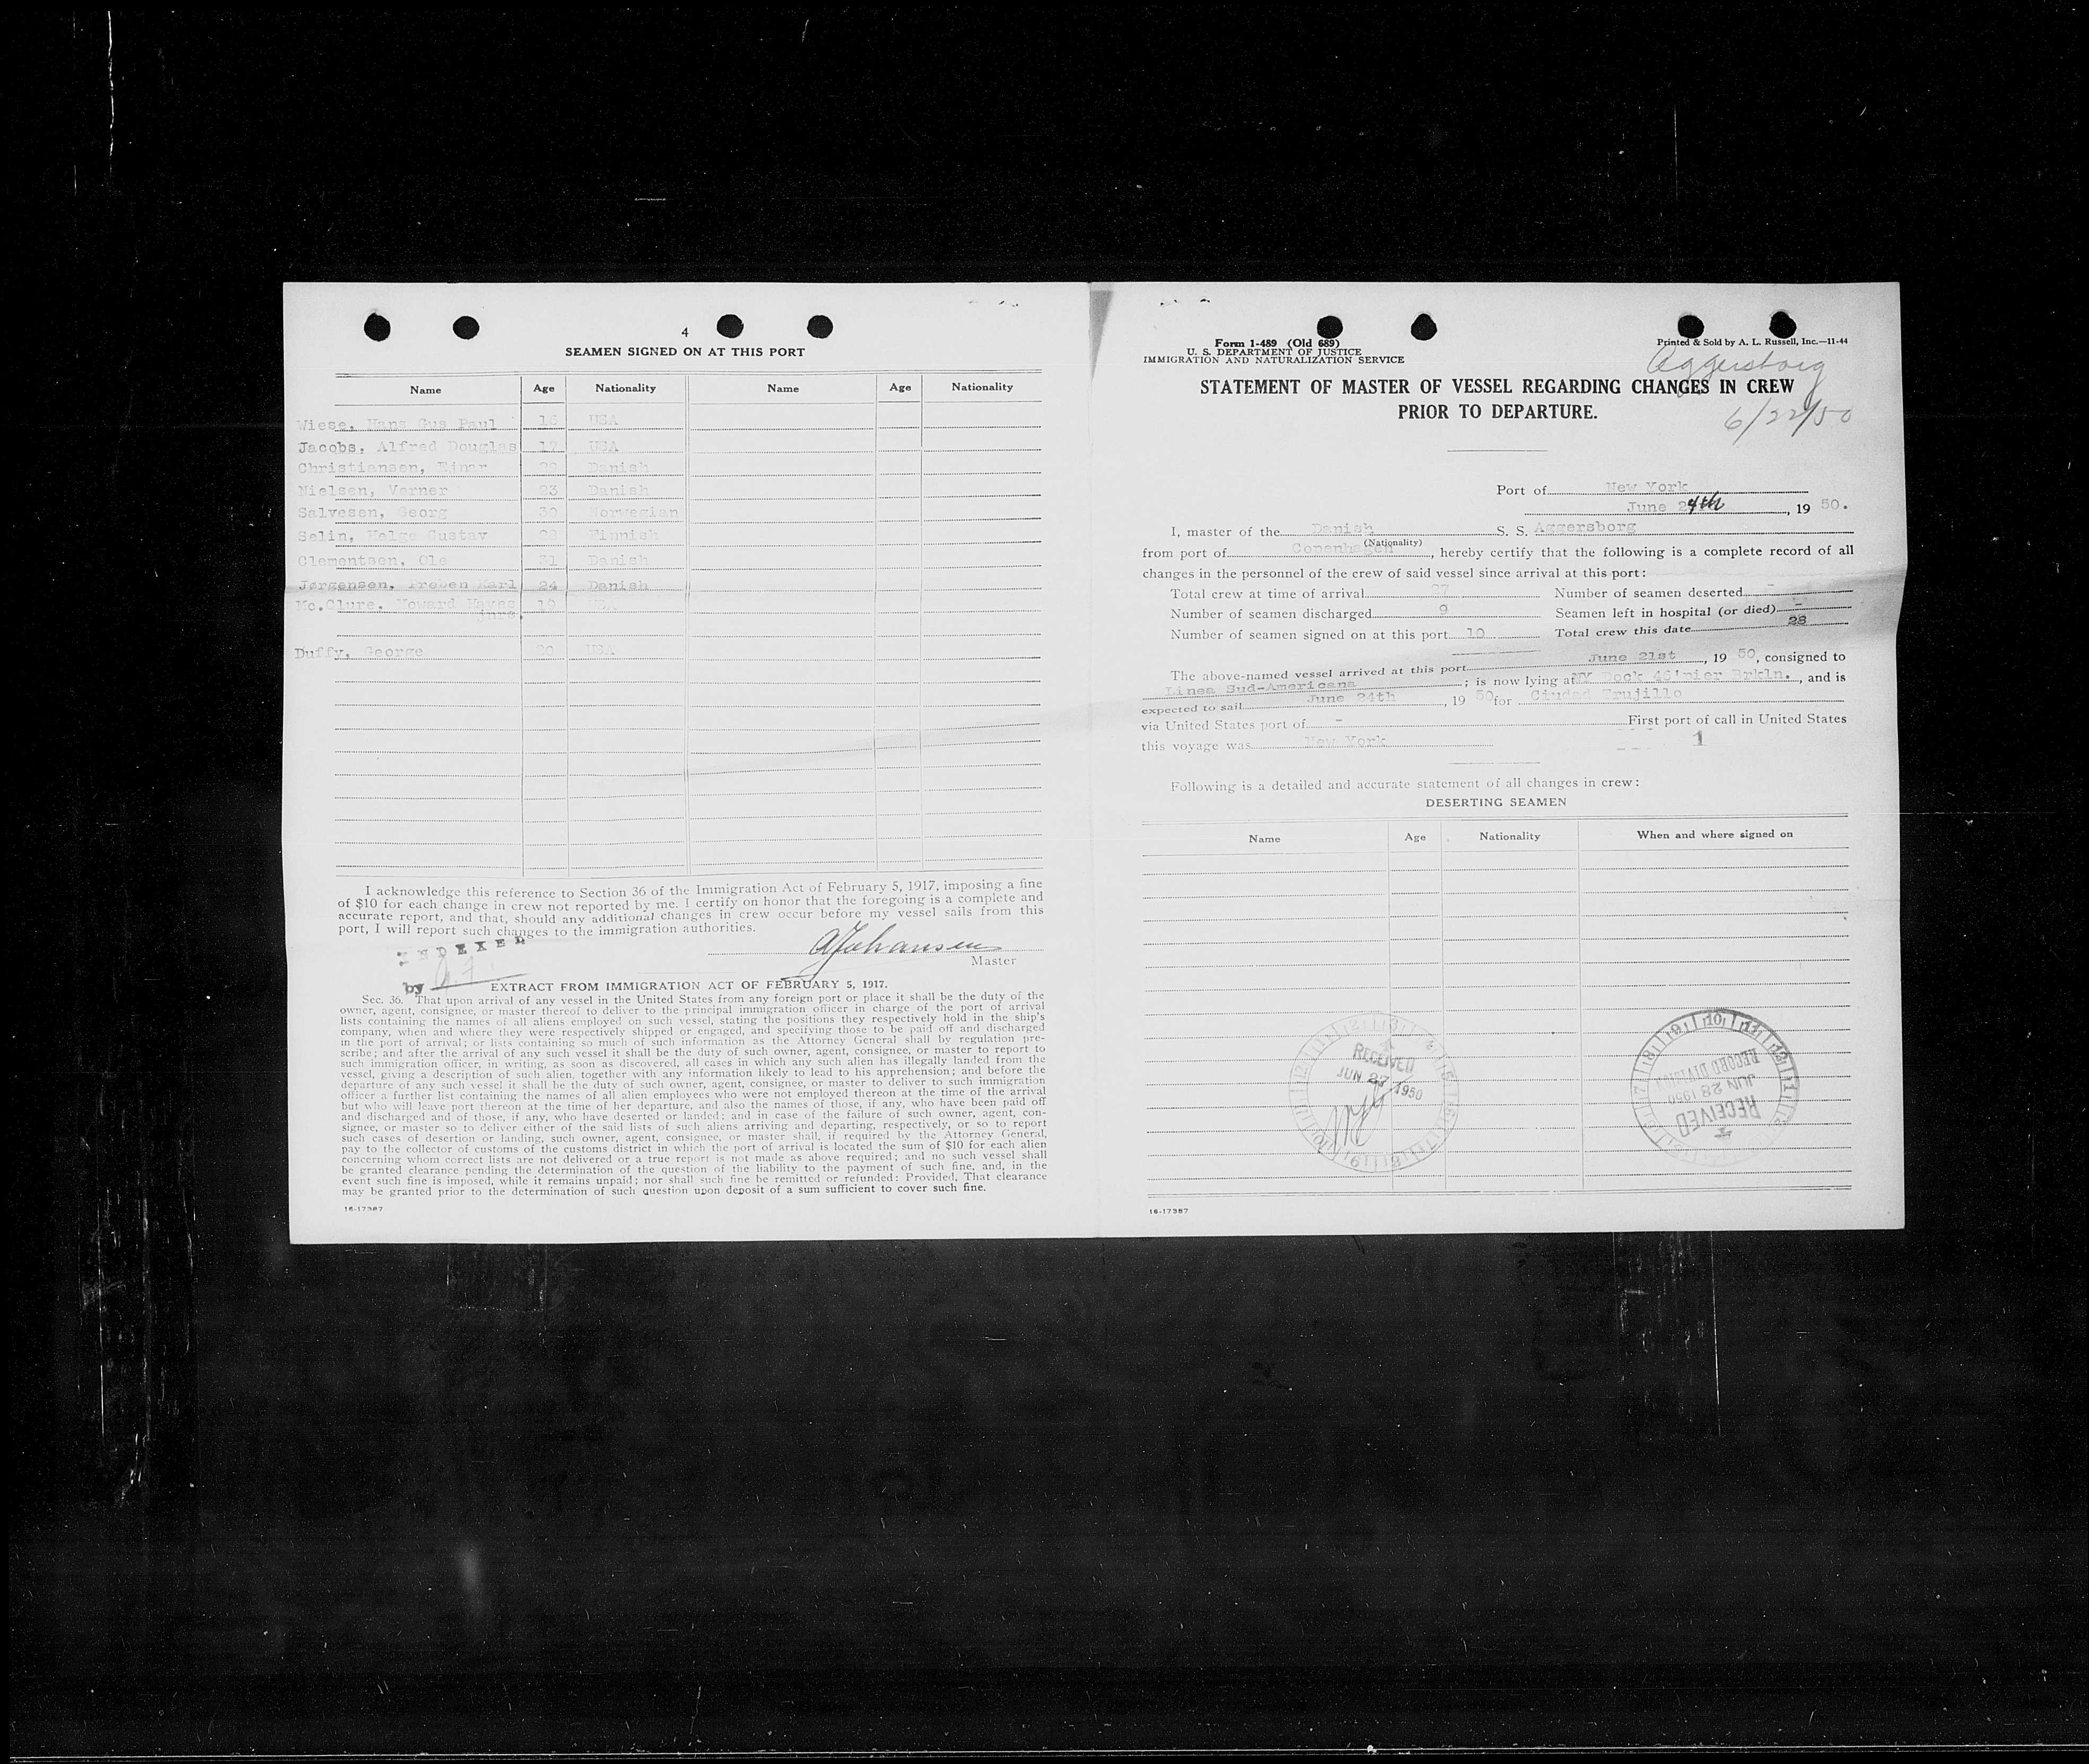 4
SEAMEN SIGNED ON AT THIS PORT
Name Age Nationality Name Age Nationality
Wiese, Hans Gus Paul 16 USA
Jacobs, Alfred Douglas 17 USA
Christiansen, Ejnar Danish
Nielsen, Verner 23 Danish
Salvesen, Georg 30 Norwegian
Selin, Helge Gustav Finnish
Clementsen, Ole 31 Danish
Jørgensen, Preben Karl 24 Danish
Mc.Clure, Howard Hayes 19 USA
jnrs.
Duffy, George 20 USA
I acknowledge this reference to Section 36 of the Immigration Act of February 5, 1917, imposing a fine
of $10 for each change in crew not reported by me. I certify on honor that the foregoing is a complete and
accurate report, and that, should any additional changes in crew occur before my vessel sails from this
port, I will report such changes to the immigration authorities.
INDEXED
AJohansen
Master
by
EXTRACT FROM IMMIGRATION ACT OF FEBRUARY 5, 1917.
Sec. 36. That upon arrival of any vessel in the United States from any foreign port or place it shall be the duty of the
owner, agent, consignee, or master thereof to deliver to the principal immigration officer in charge of the port of arrival
lists containing the names of all aliens employed on such vessel, stating the positions they respectively hold in the ship's
company, when and where they were respectively shipped or engaged, and specifying those to be paid off and discharged
in the port of arrival; or lists containing so much of such information as the Attorney General shall by regulation pre-
scribe; and after the arrival of any such vessel it shall be the duty of such owner, agent, consignee, or master to report to
such immigration officer, in writing, as soon as discovered, all cases in which any such alien has illegally landed from the
vessel, giving a description of such alien, together with any information likely to lead to his apprehension; and before the
departure of any such vessel it shall be the duty of such owner, agent, consignee, or master to deliver to such immigration
officer a further list containing the names of all alien employees who were not employed thereon at the time of the arrival
but who will leave port thereon at the time of her departure, and also the names of those, if any, who have been paid off
and discharged and of those, if any, who have deserted or landed; and in case of the failure of such owner, agent, con-
signee, or master so to deliver either of the said lists of such aliens arriving and departing, respectively, or so to report
such cases of desertion or landing, such owner, agent, consignee, or master shall, if required by the Attorney General,
pay to the collector of customs of the customs district in which the port of arrival is located the sum of $10 for each alien
concerning whom correct lists are not delivered or a true report is not made as above required; and no such vessel shall
be granted clearance pending the determination of the question of the liability to the payment of such fine, and, in the
event such fine is imposed, while it remains unpaid; nor shall such fine be remitted or refunded: Provided, That clearance
may be granted prior to the determination of such question upon deposit of a sum sufficient to cover such fine.
16-17387
Form 1-489 (Old 689)
U. S. DEPARTMENT OF JUSTICE
IMMIGRATION AND NATURALIZATION SERVICE
Printed & Sold by A. L. Russell, Inc.—11-44
Aggersborg
STATEMENT OF MASTER OF VESSEL REGARDING CHANGES IN CREW
PRIOR TO DEPARTURE.
6/22/50
Port of New York
June 24th, 19 50.
I, master of the Danish S. S. Aggersborg
(Nationality)
from port of Copenhagen, hereby certify that the following is a complete record of all
changes in the personnel of the crew of said vessel since arrival at this port:
Total crew at time of arrival 27 Number of seamen deserted -
Number of seamen discharged 9 Seamen left in hospital (or died) -
Number of seamen signed on at this port 10 Total crew this date 28
The above-named vessel arrived at this port June 21st, 19 50, consigned to
Linea Sud-Americana; is now lying at NY Dock 46'pier Brkln., and is
expected to sail June 24th, 19 50 for Ciudad Trujillo
via United States port of - First port of call in United States
this voyage was New York 1
Following is a detailed and accurate statement of all changes in crew:
DESERTING SEAMEN
Name Age Nationality When and where signed on
RECEIVED
JUN 27 1950
RECEIVED
JUN 28 1950
RECORD DIVISION
16-17387